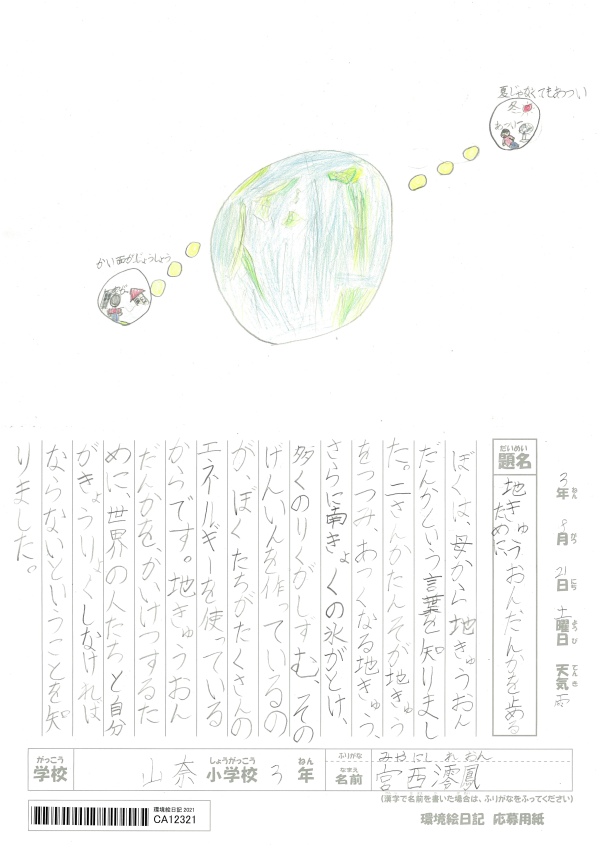 夏じゃなくてもあつい
冬
あつい〜
かい面がじょうしょう
3年 8月 21日 土曜日 天気 雨
ねん がつ にち ようび てんき
だいめい
題名
地きゅうおんだんかを止める
ために
ぼくは、母から地きゅうおん
だんかという言葉を知りまし
た。二さんかたんそが地きゅう
をつつみ、あつくなる地きゅう、
さらに南きょくの氷がとけ、
多くのりくがしずむ、その
げんいんを作っているの
が、ぼくたちがたくさんの
エネルギーを使っている
からです。地きゅうおん
だんかを、かいけつするた
めに、世界の人たちと自分
がきょうりょくしなければ
ならないということを知
りました。
がっこう
学校
山奈
しょうがっこう
小学校
3
ねん
年
ふりがな
みやにし れおん
なまえ
名前
宮西澪鳳
(漢字で名前を書いた場合は、ふりがなをふってください)
環境絵日記 2021
CA12321
環境絵日記 応募用紙